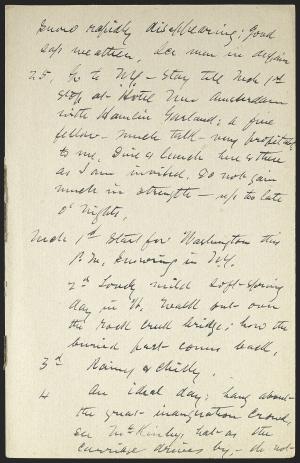 Snow rapidly disappearing; Good
sap weather, 
25. Go to N.Y. - stay till Mch 1st
stop at Hotel New Amsterdam
with Hamlin Garland; a fine
fellow - much talk - very profitable
to me. Dine & lunch here & there
as I am invited. Do not gain
much in strength - up too late
o' nights.
Mch 1st Start for Washington this
P.M. Snowing in N.Y.
2nd Lovely mild soft spring
day in W. Walk out over
the Rock creek bridge; how the
buried past comes back.
3d Rainy & chilly.
4 An ideal day; hang about
the great inauguration crowd,
see McKinley's hat as the
carriage drives by - do not